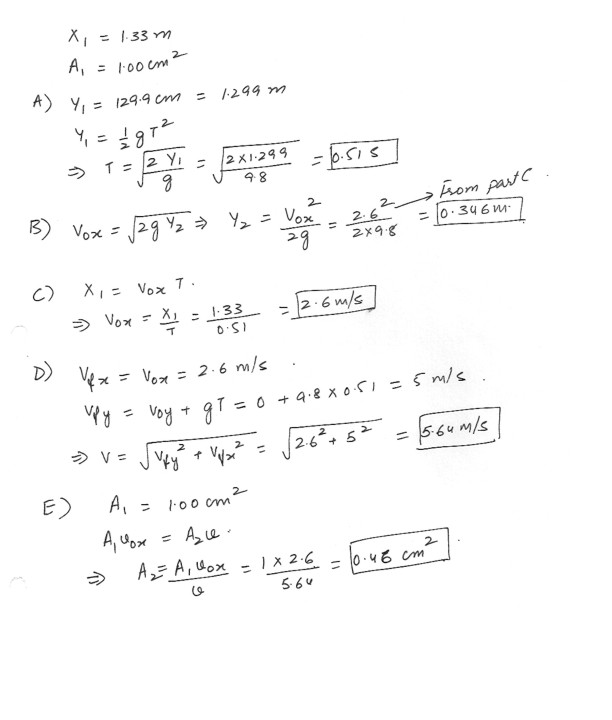 X₁ = 1.33 m
A₁ = 1.00 cm²
A) Y₁ = 129.9 cm = 1.299 m
Y₁ = ½ g T²
⇒ T = √(2 Y₁ / g) = √(2×1.299 / 9.8) = 0.51 s
B) Vox = √(2g Y₂) ⇒ Y₂ = Vox² / 2g = 2.6² / 2×9.8 → From part C. = 0.346 m.
C) X₁ = Vox T.
⇒ Vox = X₁ / T = 1.33 / 0.51 = 2.6 m/s
D) Vfx = Vox = 2.6 m/s.
Vfy = Voy + gT = 0 + 9.8 × 0.51 = 5 m/s.
⇒ V = √(Vfy² + Vfx²) = √(2.6² + 5²) = 5.64 m/s
E) A₁ = 1.00 cm²
A₁ vox = A₂ v.
⇒ A₂ = A₁ vox / v = 1 × 2.6 / 5.64 = 0.46 cm².